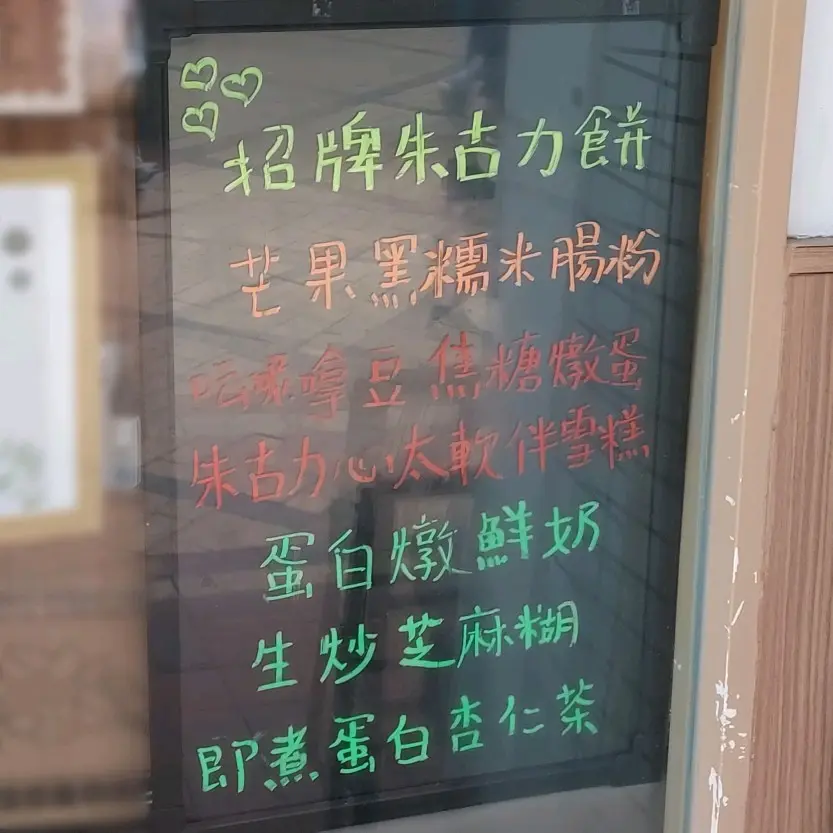 招牌朱古力餅
芒果黑糯米腸粉
呍嚟嗱豆焦糖燉蛋
朱古力心太軟伴雪糕
蛋白燉鮮奶
生炒芝麻糊
即煮蛋白杏仁茶